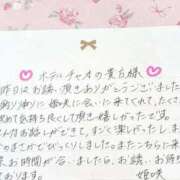 ホテルチャオの貴方様
昨日はお誘い頂きありがとうございました
姫咲に会いに来てくれて、たく
て気持ち良くして頂き嬉しかったです
お話しができて、すごく楽しかったし
のまさかでびっくりしましたまたこちらに来
お時間が合いましたら、お誘いお待ち
姫咲